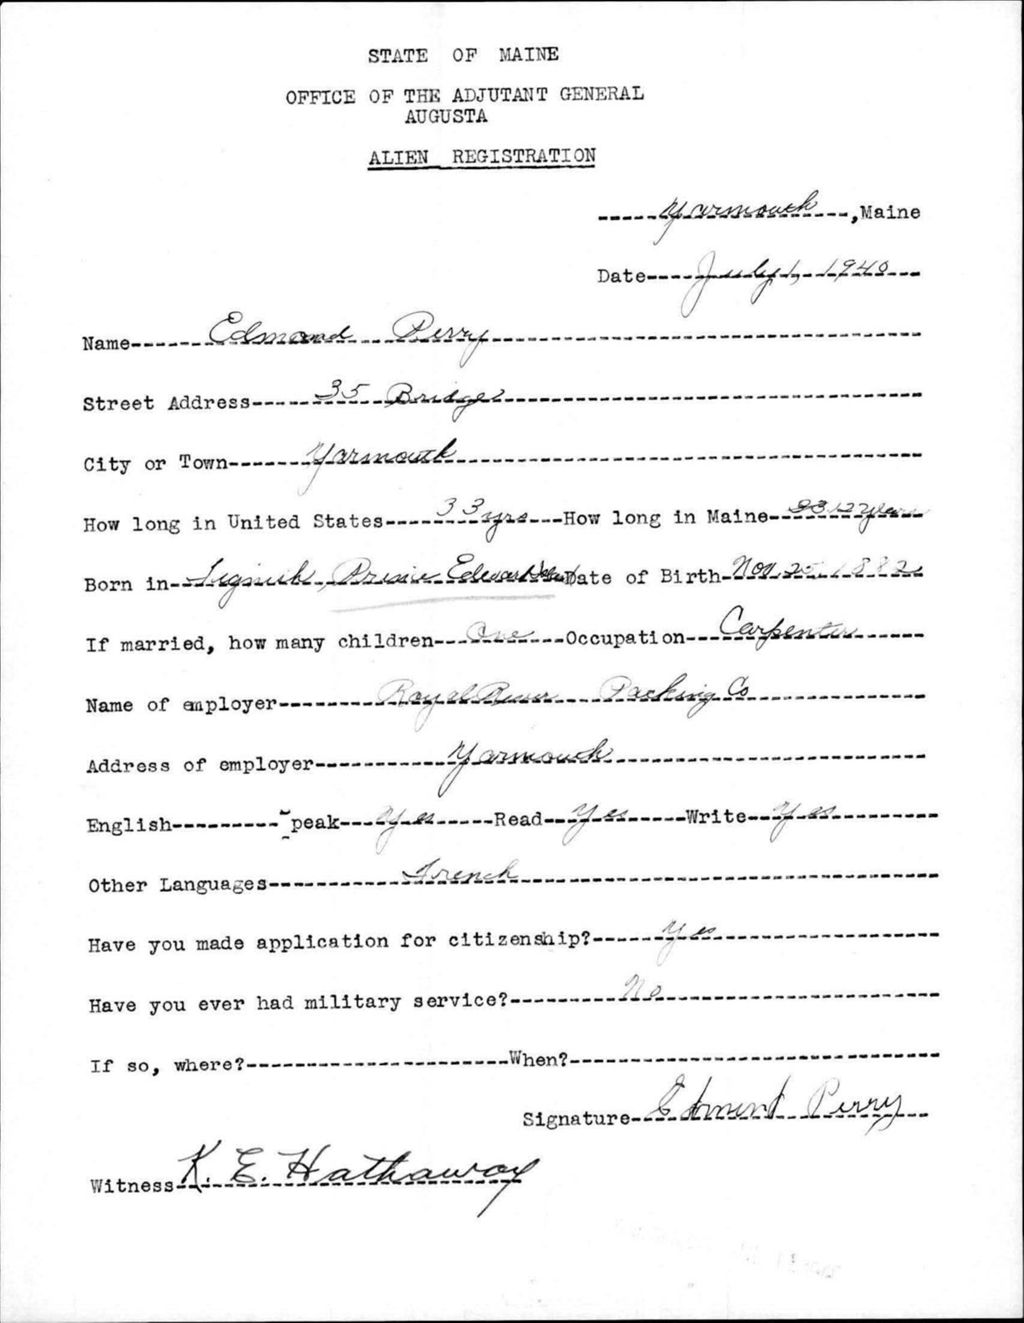 STATE OF MAINE
OFFICE OF THE ADJUTANT GENERAL
AUGUSTA
ALIEN REGISTRATION
Yarmouth, Maine
Date July 1, 1940
Name Edmond Perry
Street Address 35 Bridge
City or Town Yarmouth
How long in United States 33 yrs How long in Maine years
Born in Prince Edward Date of Birth Nov. 25, 1882
If married, how many children One Occupation Carpenter
Name of employer Royal River Packing Co
Address of employer Yarmouth
English peak Yes Read Yes Write Yes
Other Languages French
Have you made application for citizenship? Yes
Have you ever had military service? No
If so, where? When?
Signature Edment Perry
Witness K. E. Hathaway